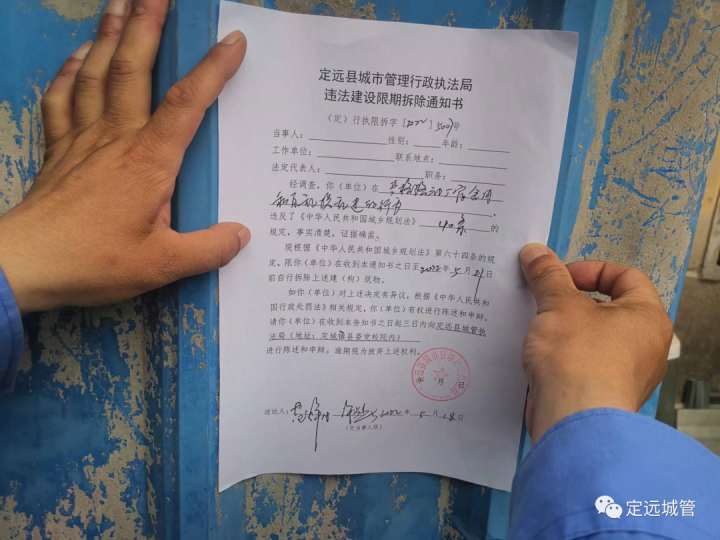 定远县城市管理行政执法局
违法建设限期拆除通知书
（定）行执限拆字［2022］5009号
当事人：性别：年龄：
工作单位：联系地点：
法定代表人：职务：
经调查，你（单位）在
违反了《中华人民共和国城乡规划法》40条的
规定，事实清楚，证据确凿。
现根据《中华人民共和国城乡规划法》第六十四条的规
定，限你（单位）在收到本通知书之日至2022年5月31日
前自行拆除上述建（构）筑物。
如你（单位）对上述决定有异议，根据《中华人民共和
国行政处罚法》相关规定，你（单位）有权进行陈述和申辩。
请你（单位）在收到本告知书之日起三日内向定远县城管执
法局（地址：定城镇县委党校院内）
进行陈述和申辩。逾期视为放弃上述权利。
年 月 日
送达人：2022年5月28日
（交当事人联）
定远城管